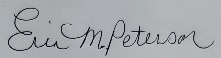 Eric M Peterson